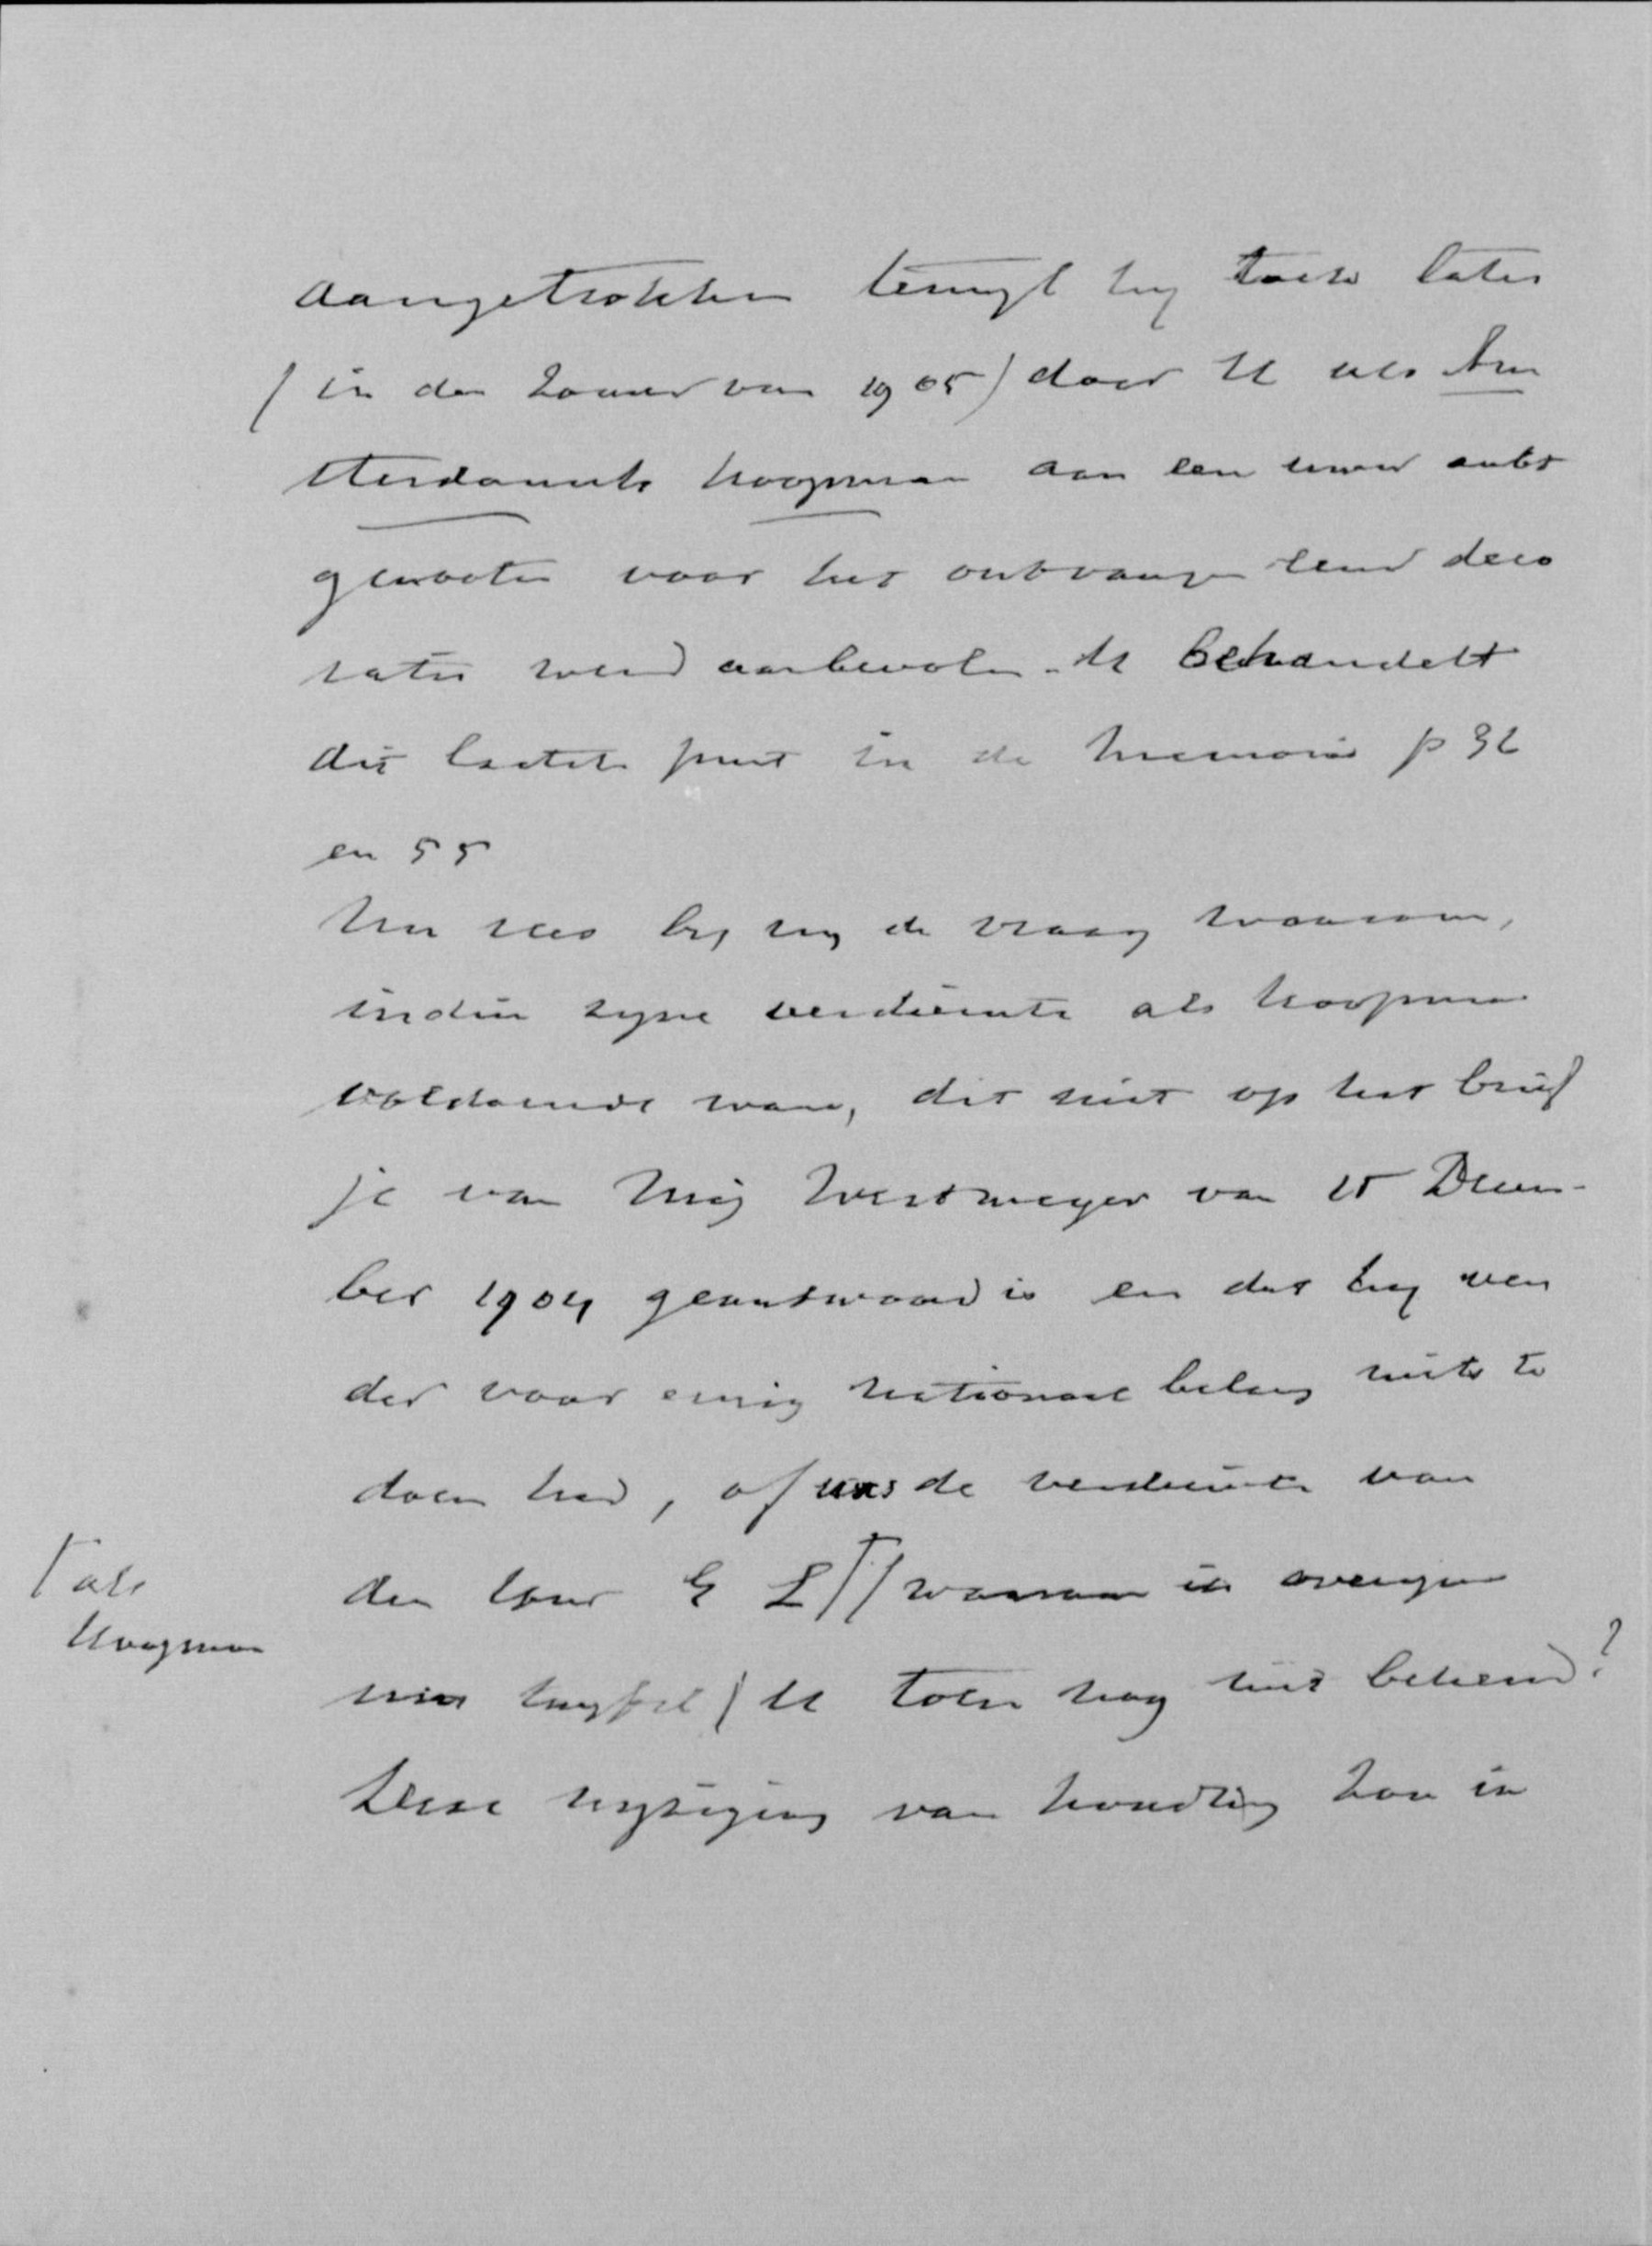 aangetrokken terwyl hy toch later
(in den zomer van 1905) door U als Am
sterdamsch koopman aan een uwer ambt
genooten voor het ontvangen eener deco
ratie werd aanbevolen. U behandelt
dit laatste punt in de Memorie p 32
en 55
Nu rees by my de vraag waarom,
indien zyne verdienste als koopman
voldoende was, dit niet op het brief
je van Mej Westmeyer van 15 Decem-
ber 1904 geantwoord is en dat hy ver
der voor eenig nationaal belang niets te
doen had, of was de verdienste van
den heer E L (waaraan ik overigens
niet twyfel) U toen nog niet bekend?
Deze wyziging van houding kan in
als
koopman